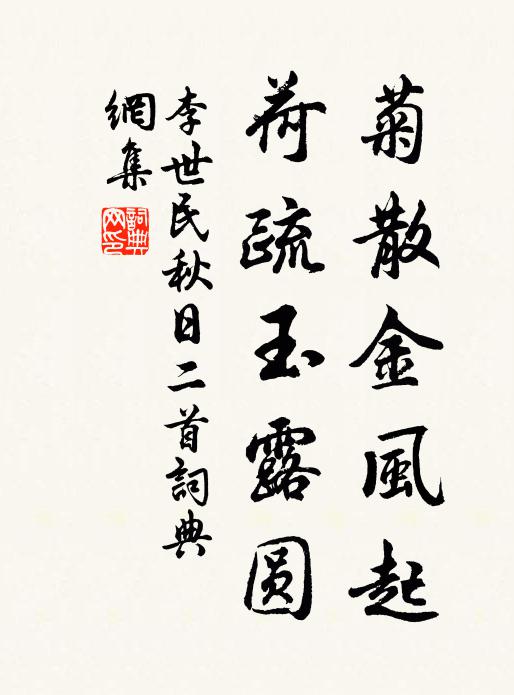 菊散金風起
荷疏玉露圆
李世民秋日二首詞典
網集
詞典
网印